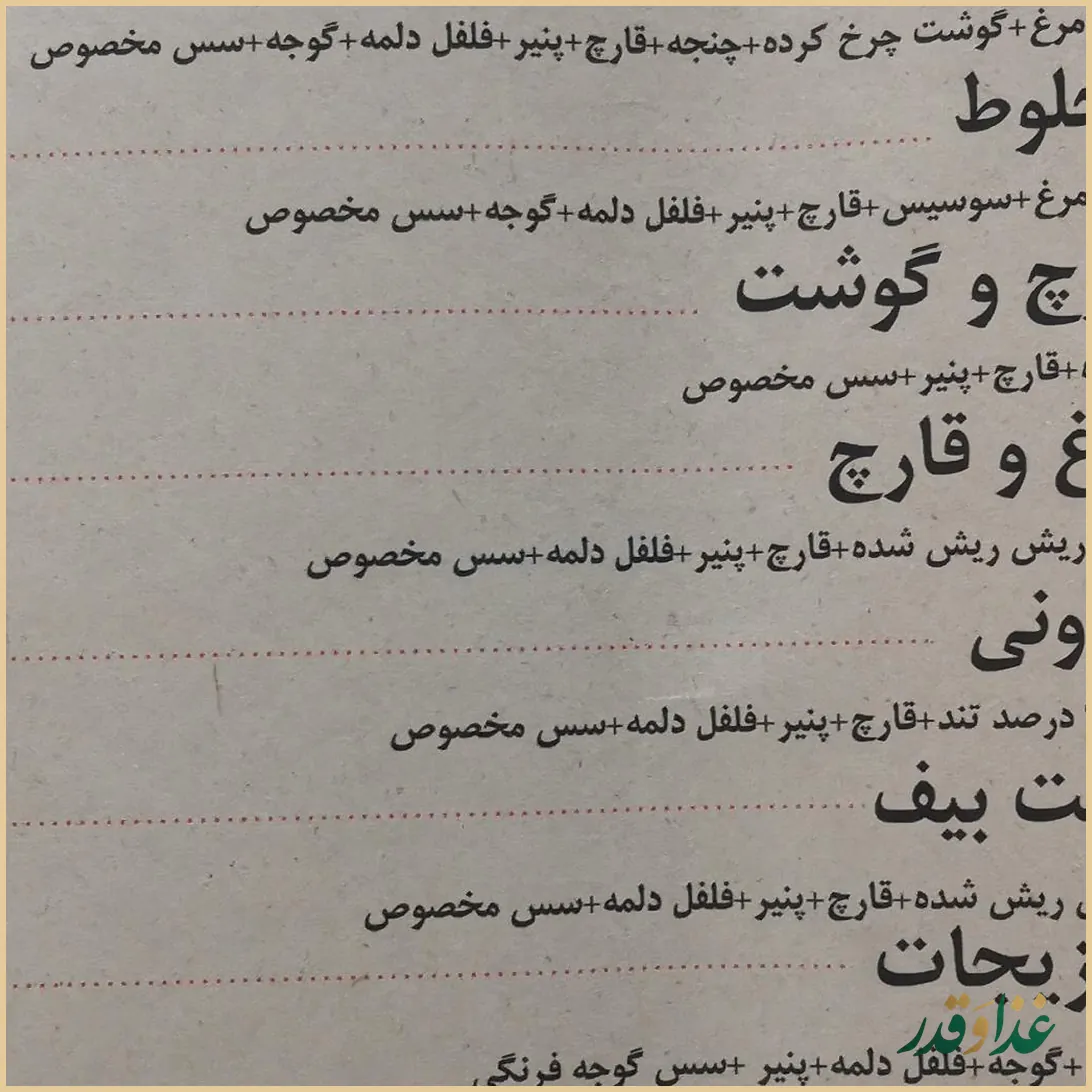 مرغ+گوشت چرخ کرده+چنجه+قارچ+پنیر+فلفل دلمه+گوجه+سس مخصوص
مرغ+سوسیس+قارچ+پنیر+فلفل دلمه+گوجه+سس مخصوص
و گوشت
+قارچ+پنیر+سس مخصوص
و قارچ
ریش ریش شده+قارچ+پنیر+فلفل دلمه+سس مخصوص
درصد تند+قارچ+پنیر+فلفل دلمه+سس مخصوص
بیف
ریش شده+قارچ+پنیر+فلفل دلمه+سس مخصوص
غذا و قدر
+گوجه+فلفل دلمه+پنیر +سس گوجه فرنگی